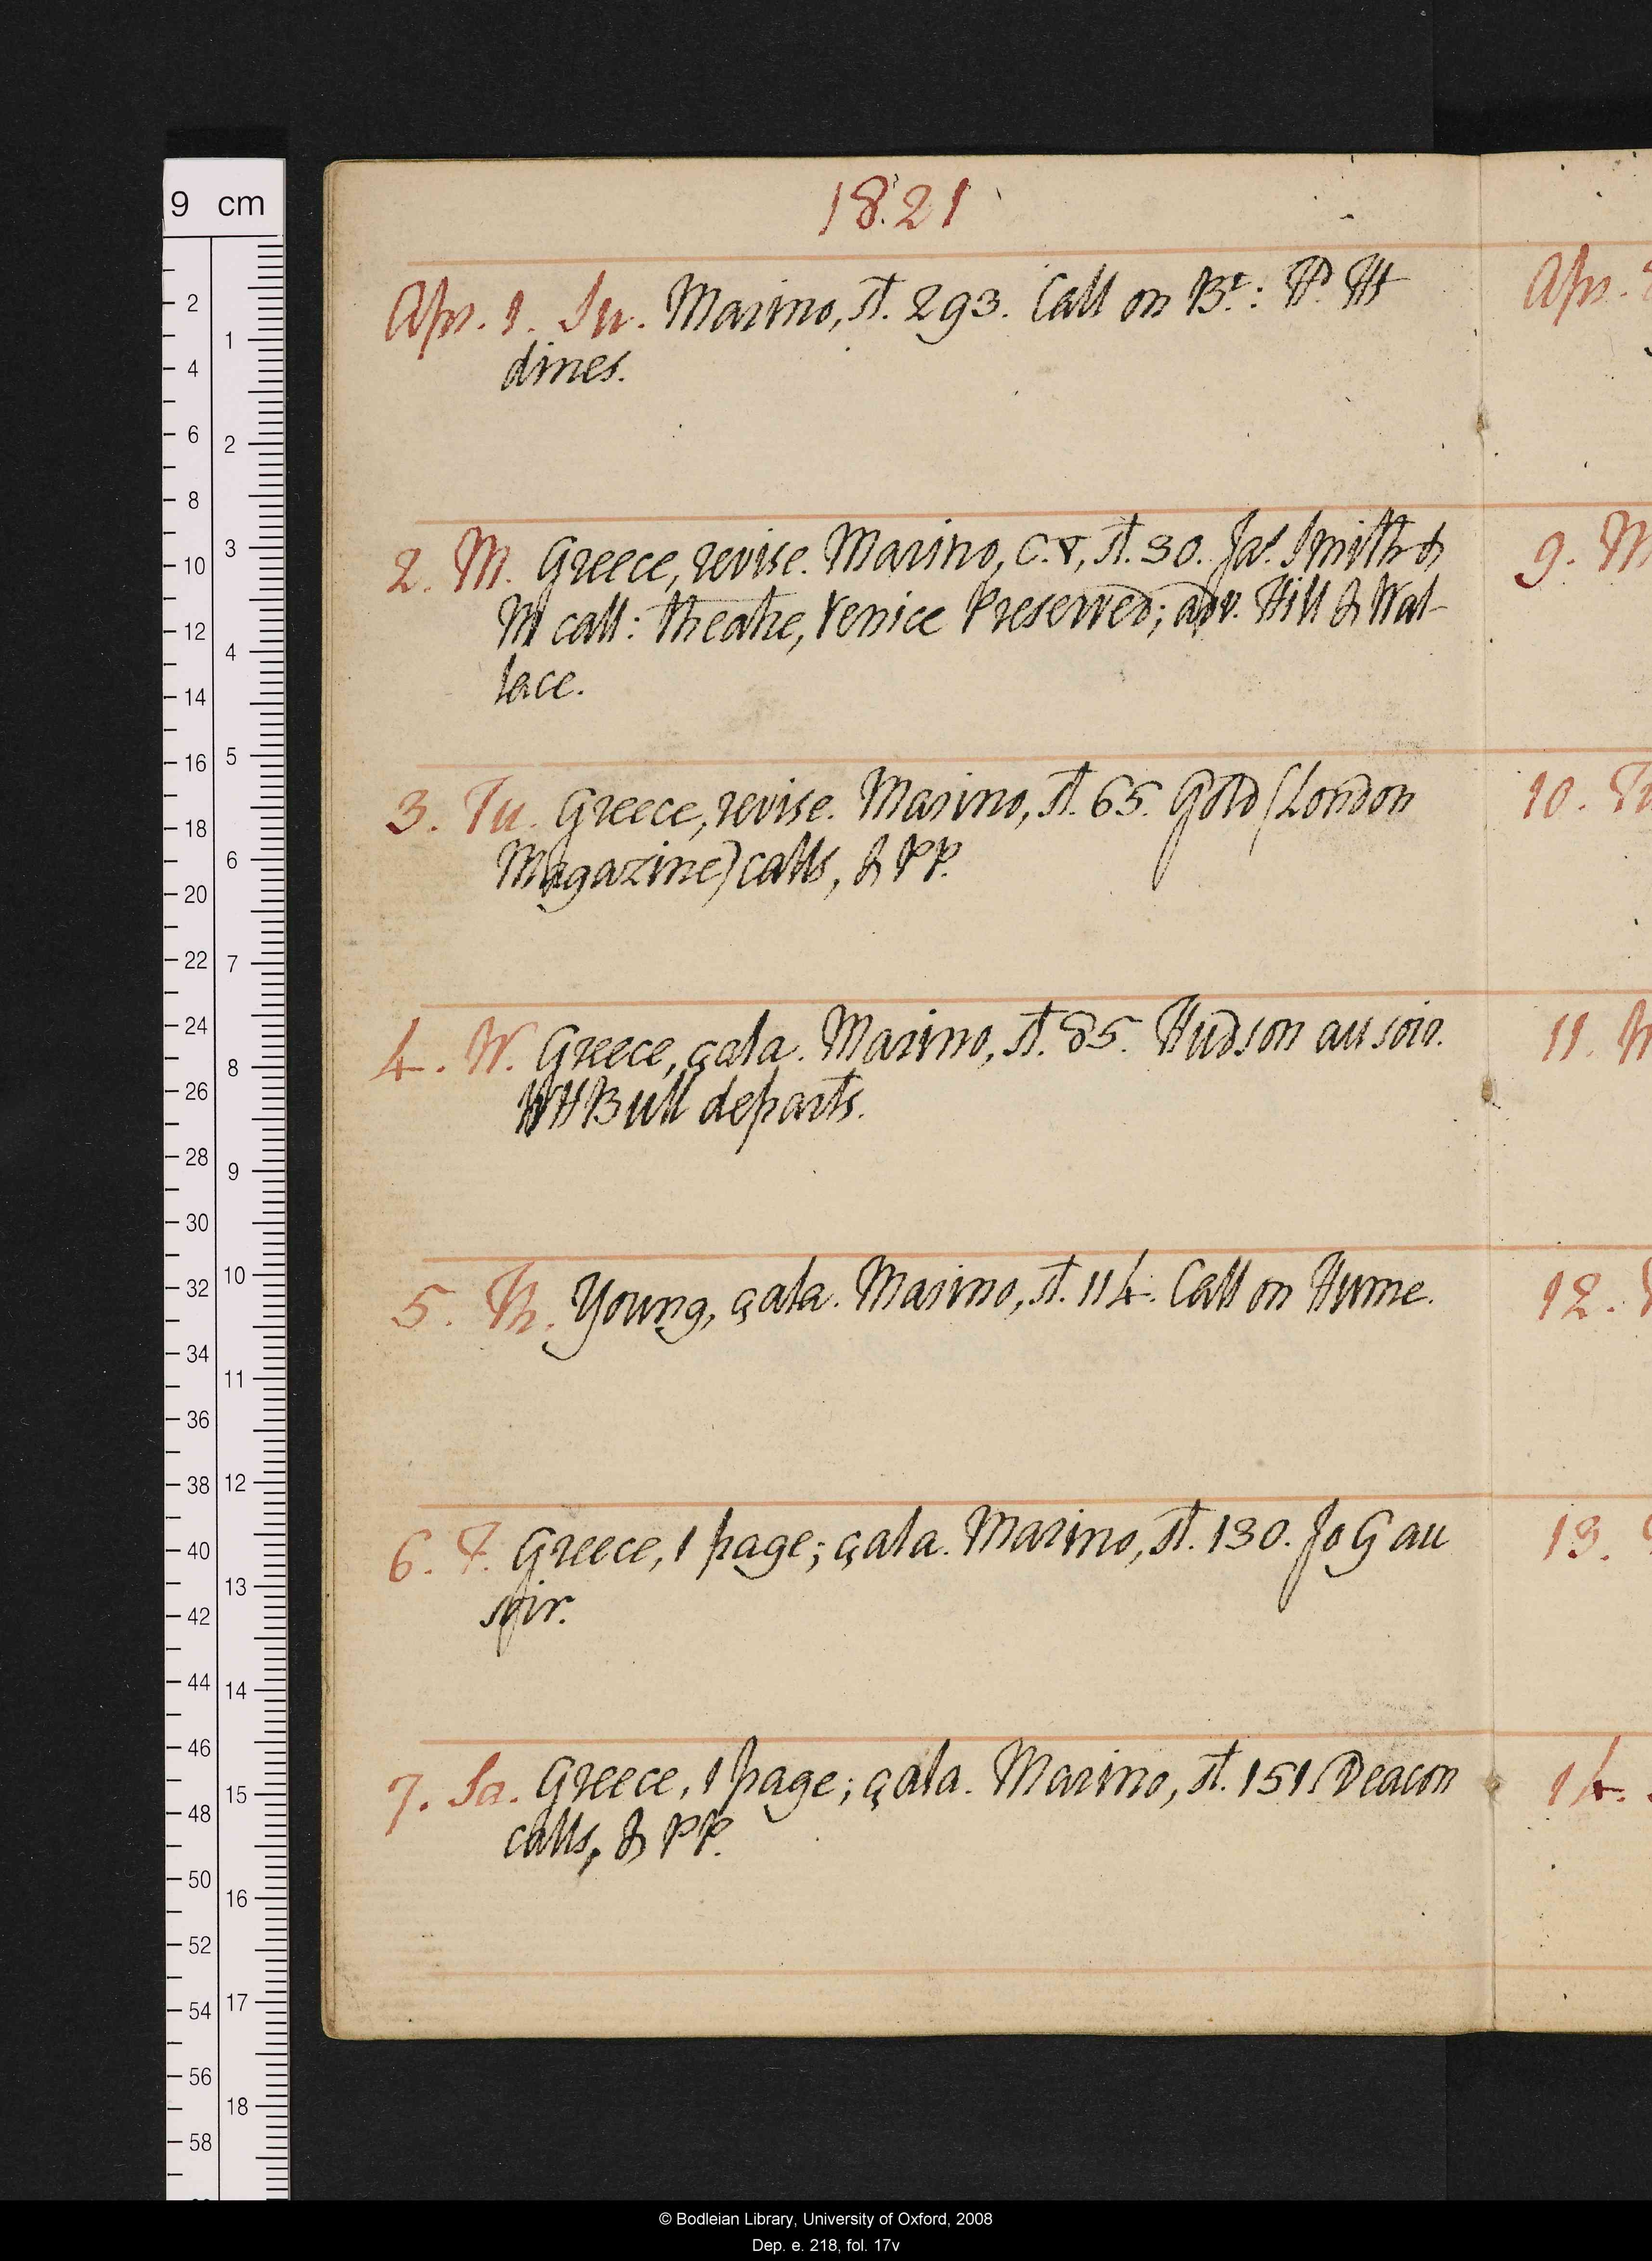 1821
Apr. 1. Su. Marino, st. 293. Call on Bt: Hd Ht
dines.
2. M. Greece, revise. Marino, C. T, st. 30. Jas. Smith &
M call: theatre, Venice Preserved; adv. Hill & Wal-
lace.
3. Tu. Greece, revise. Marino, st. 65. Gold (London
Magazine) calls, & PP.
4. W. Greece, çala. Marino, st. 85. Hudson au soir.
WHBull departs.
5. Th. Young, çala. Marino, st. 114. Call on Hume.
6. F. Greece, 1 page; çala. Marino, st. 130. JoG au
soir.
7. Sa. Greece, 1 page; çala. Marino, st. 151. Deacon
calls, & PP.
Apr.
9. M
10. Tu
11. W
12.
13.
14.
9 cm
2
4
6
8
10
12
14
16
18
20
22
24
26
28
30
32
34
36
38
40
42
44
46
48
50
52
54
56
58
1
2
3
4
5
6
7
8
9
10
11
12
13
14
15
16
17
18
© Bodleian Library, University of Oxford, 2008
Dep. e. 218, fol. 17v